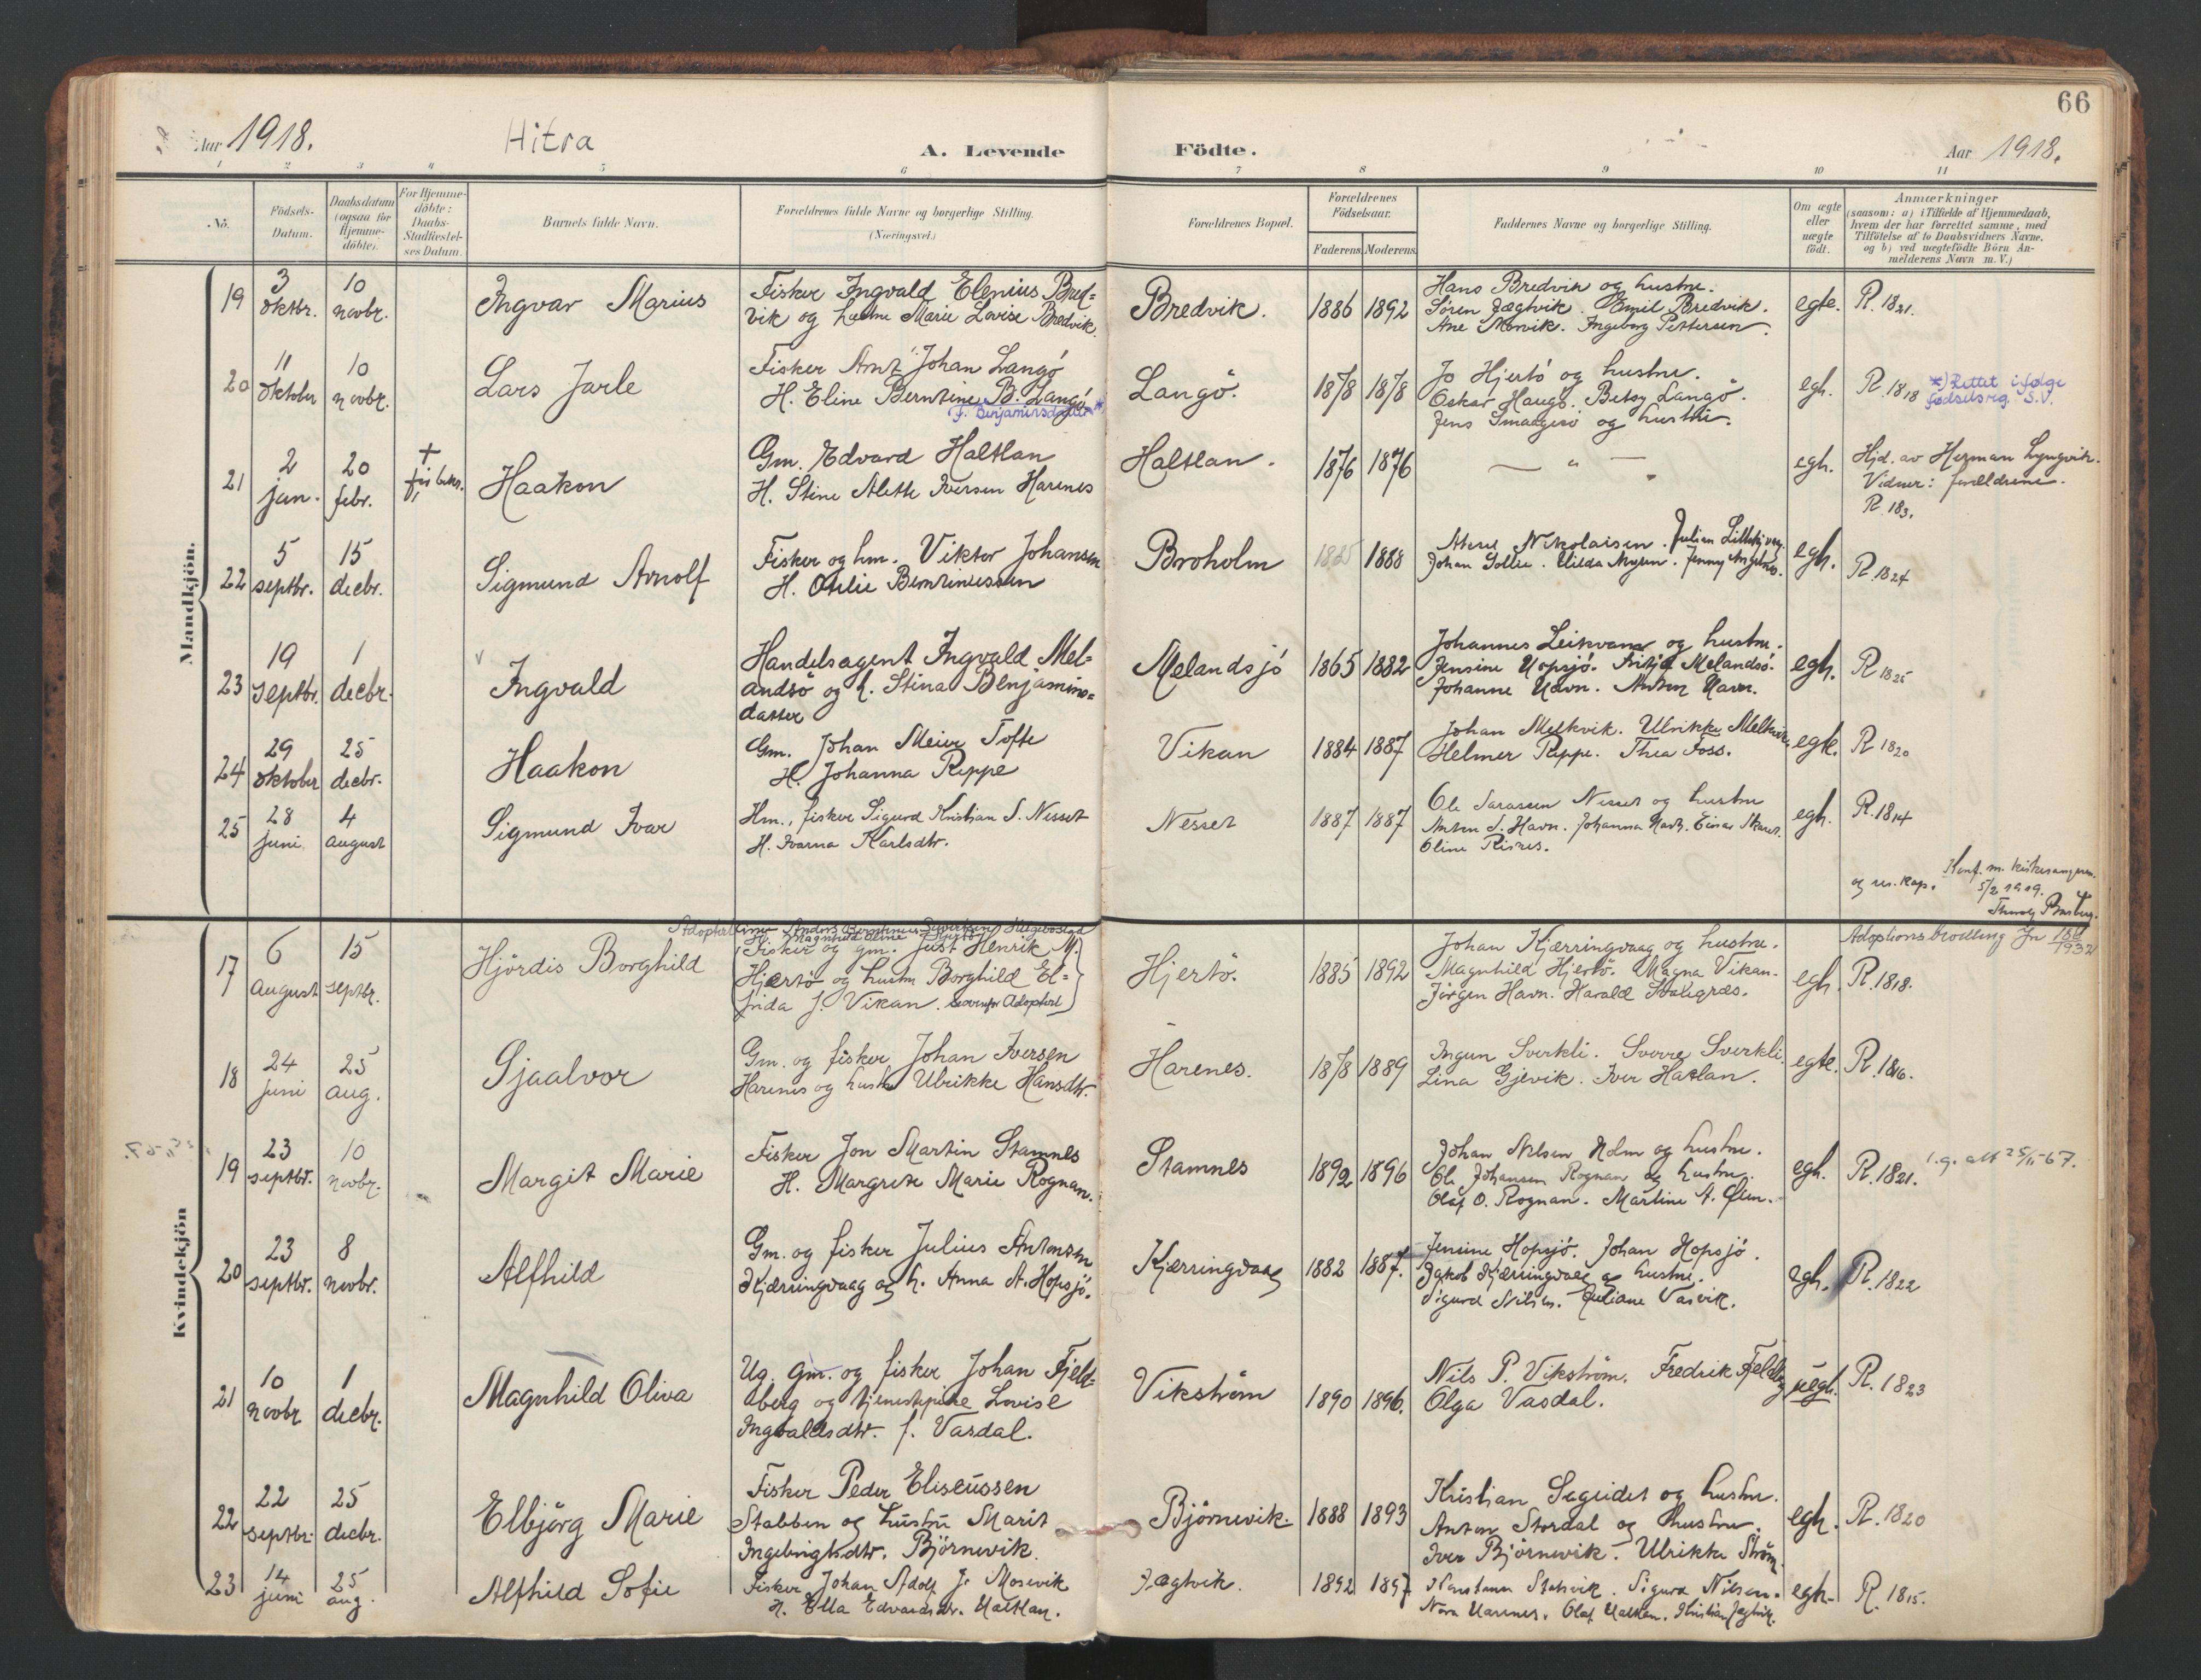 66
Aar 1918.
Hitra
A. Levende Födte.
Aar 1918.
1 2 3 4 5 6 7 8 9 10 11
No.
Födsels-
Datum.
Daabsdatum
(ogsaa for
Hjemme-
döbte).
For Hjemme-
döbte:
Daabs-
Stadfæstel-
ses Datum.
Barnets fulde Navn.
Forældrenes fulde Navne og borgerlige Stilling.
(Næringsvei.)
Forældrenes Bopæl.
Forældrenes
Födselsaar.
Faderens. Moderens.
Faddernes Navne og borgerlige Stilling.
Om ægte
eller
uægte
födt.
Anmærkninger
(saasom: a) i Tilfælde af Hjemmedaab,
hvem der har forrettet samme, med
Tilföielse af to Daabsvidners Navne,
og b) ved uægtefödte Börn An-
melderens Navn m. V.)
Mandkjön.
19
3
oktbr.
10
novbr.
Ingvar Marius
Fisker Ingvald Elenius Bred=
vik og hustru Marie Lovise Bredvik.
Bredvik.
1886 1892
Hans Bredvik og hustru.
Sören Jægtvik. Emil Bredvik.
Ane Morvik. Ingeborg Pettersen.
egte.
R. 1821.
20
11
oktober
10
novbr.
Lars Jarle
Fisker Arnt Johan Langö
H. Eline Berntine B. Langö
(f. Benjaminsdatter*
Langö.
1878 1878
Jo Hjertö og hustru.
Oskar Haugö. Betsy Langö.
Jens Smaagesö og hustru.
egh.
R. 1818
*) Rettet ifølge
fødselsreg. S.V.
21
2
jan.
20
febr.
†
Haakon
Gm. Edvard Haltlan
H. Stine Alette Iversen Harenes
Haltlan.
1876 1876
— „ —
egh.
Hjd. av Herman Lyngvik.
Vidner: forældrene.
R. 183.
22
5
septbr.
15
decbr.
Sigmund Arnolf
Fisker og hm. Viktor Johansen
H. Otelie Berntinussen
Broholm
1888
Nikolaisen. Julian
Johan Gollie. Hilda
egh.
R. 1824
23
19
septbr.
1
decbr.
Ingvald
Handelsagent Ingvald Mel=
andsö og h. Stina Benjamins=
datter
Melandsjö
1865 1882
Johannes Leikvand og hustru.
Jensine Hopsjö. Fritjof Melandsö.
Johanne Havn. Anton Havn.
egh.
R 1825
24
29
oktober
25
decbr.
Haakon
Gm. Johan Meier Tofte
H. Johanna Reppe
Vikan
1884 1887
Johan Melkvik. Ulrikke Melkvik.
Helmer Reppe. Thea Foss.
egte.
R 1820
25
28
juni
4
august
Sigmund Ivar
Hm., fisker Sigurd Kristian S. Nesset
H. Ivarna Karlsdtr.
Nesset
1887 1887
Ole Sarassen Nesset og hustru
Anton S. Havn. Johanna Havn. Einar Skaret.
Oline Risnes.
egh.
R. 1814
5/2 1919.
og res. kap.
Kvindekjön
Adoptert Anders Berntinus Syvertsen
H. Magnhild Eline Hjertö
Adoptionsbevilling Jn 186/1932
17
6
august
15
septbr.
Hjördis Borghild
(Fisker og gm. Just Henrik M.
Hjærtö og hustru Borghild El=
frida J. Vikan. Adoptert)
Hjertö.
1885 1892
Johan Kjærringvaag og hustru.
Magnhild Hjertö. Magna Vikan.
Jörgen Havn. Harald
egh.
R. 1818.
18
24
juni
25
aug.
Gjaalvor
Gm. og fisker Johan Iversen
Harenes og hustru Ulrikke Hansdtr.
Harenes.
1878 1889
Ingun Sverkli. Sverre Sverkli.
Lina Gjevik. Iver Hatlan.
egte.
R. 1816.
19
23
septbr.
10
novbr.
Margit Marie
Fisker Jon Martin Stamnes
H. Margrete Marie Rognan.
Stamnes
1892 1896
Johan Nilsen Holm og hustru.
Ole Johansen Rognan og hustru.
Olaf O. Rognan. Martine A. Öien.
egh.
R. 1821.
20
23
septbr.
8
novbr.
Alfhild
Gm. og fisker Julius Antonsen
Kjærringvaag og h. Anna A. Hopsjö.
Kjærringvaag
1882 1887.
Jensine Hopsjö. Johan Hopsjö.
Jakob Kjærringvaag og hustru.
Sigurd Nilsen. Juliane Vasvik.
egh.
R. 1822
21
10
novbr.
1
decbr.
Magnhild Oliva
Ug. gm. og fisker Johan Fjeld=
aberg og tjenestepike Lovise
Ingvaldsdtr. f. Vasdal.
Vikström
1890 1896.
Nils P. Vikström. Fredrik
Olga Vasdal.
uegh.
R. 1823
22
22
septbr.
25
decbr.
Elbjörg Marie
Fisker Peder Eliseussen
Stabben og hustru Marit
Ingebrigtsdtr. Björnevik.
Björnevik.
1888 1893
Kristian Segeidet og hustru.
Anton Stordal og hustru.
Iver Björnevik. Ulrikke Ström.
egh.
R. 1820
23
14
juni
25
aug.
Alfhild Sofie
Fisker Johan Adolf J. Mosevik
H. Ella Edvardsdtr. Haltlan.
Jægtvik.
1892 1897
Sigurd Nilsen.
Nora Harenes. Olaf Haltlan. Kristian Jægtvik.
egh.
R. 1815.